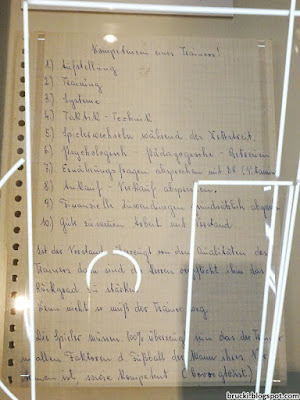 Kompetenzen eines Trainers!
1) Aufstellung
2) Training
3) Systeme
4) Taktik - Technik
5) Spielerwechseln während der
6) Psychologisch - Pädagogische -
7) Ernährungsfragen absprechen mit
8) Ankauf - Verkauf absprechen.
9) Finanzielle Zuwendungen
10) Gute Arbeit mit Vorstand
Ist der Vorstand überzeugt von den Qualitäten des
Trainers dann sind die Herren verpflicht ihm das
Rückgrad zu stärken
Wenn nicht so muß der Trainer weg.
Die Spieler müssen 100% überzeugt sein das der Trainer
in allen Faktoren d. Fußball der Mann ihres
ist, sowie kompetent
brucki.blogspot.com